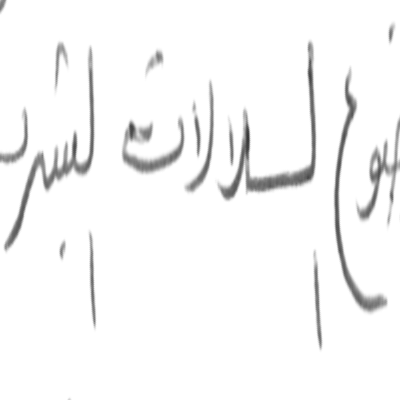 نوع السلالات البشر